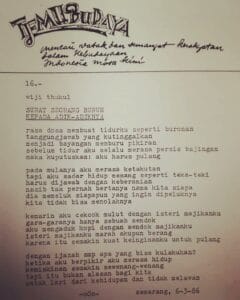 TEMU BUDAYA
mencari watak dan semangat kerakyatan
dalam kebudayaan
Indonesia masa kini
16.-
wiji thukul
SURAT SEORANG BURUH
KEPADA ADIK-ADIKNYA
rasa dosa membuat tidurku seperti buronan
tanggungjawab yang kutinggalkan
menjadi bayangan memburu pikiran
sebelum tidur aku selalu merasa persis bajingan
maka kuputuskan: aku harus pulang
pada mulanya aku merasa ketakutan
tapi aku sadar hidup seorang seperti teka-teki
harus dijawab dengan keberanian
nasib tak pernah bertanya nama kita siapa
dia memeluk siapapun yang ingin dipeluknya
kita tidak bisa menolaknya
kemarin aku cekcok mulut dengan isteri majikanku
gara-garanya hanya sebuah sendok
aku mengaduk kopi dengan sendok majikanku
isteri majikanku marah akupun berang
karena itu semakin kuat keinginanku untuk pulang
dengan ijazah smp apa yang bisa kulakukan?
ketika aku berpikir aku merasa hidup
kemiskinan semakin sewenang-wenang
tapi itu bukan alasan bagi kita
untuk lari dari kehidupan dan tidak melawan
-oOo- semarang, 6-3-86